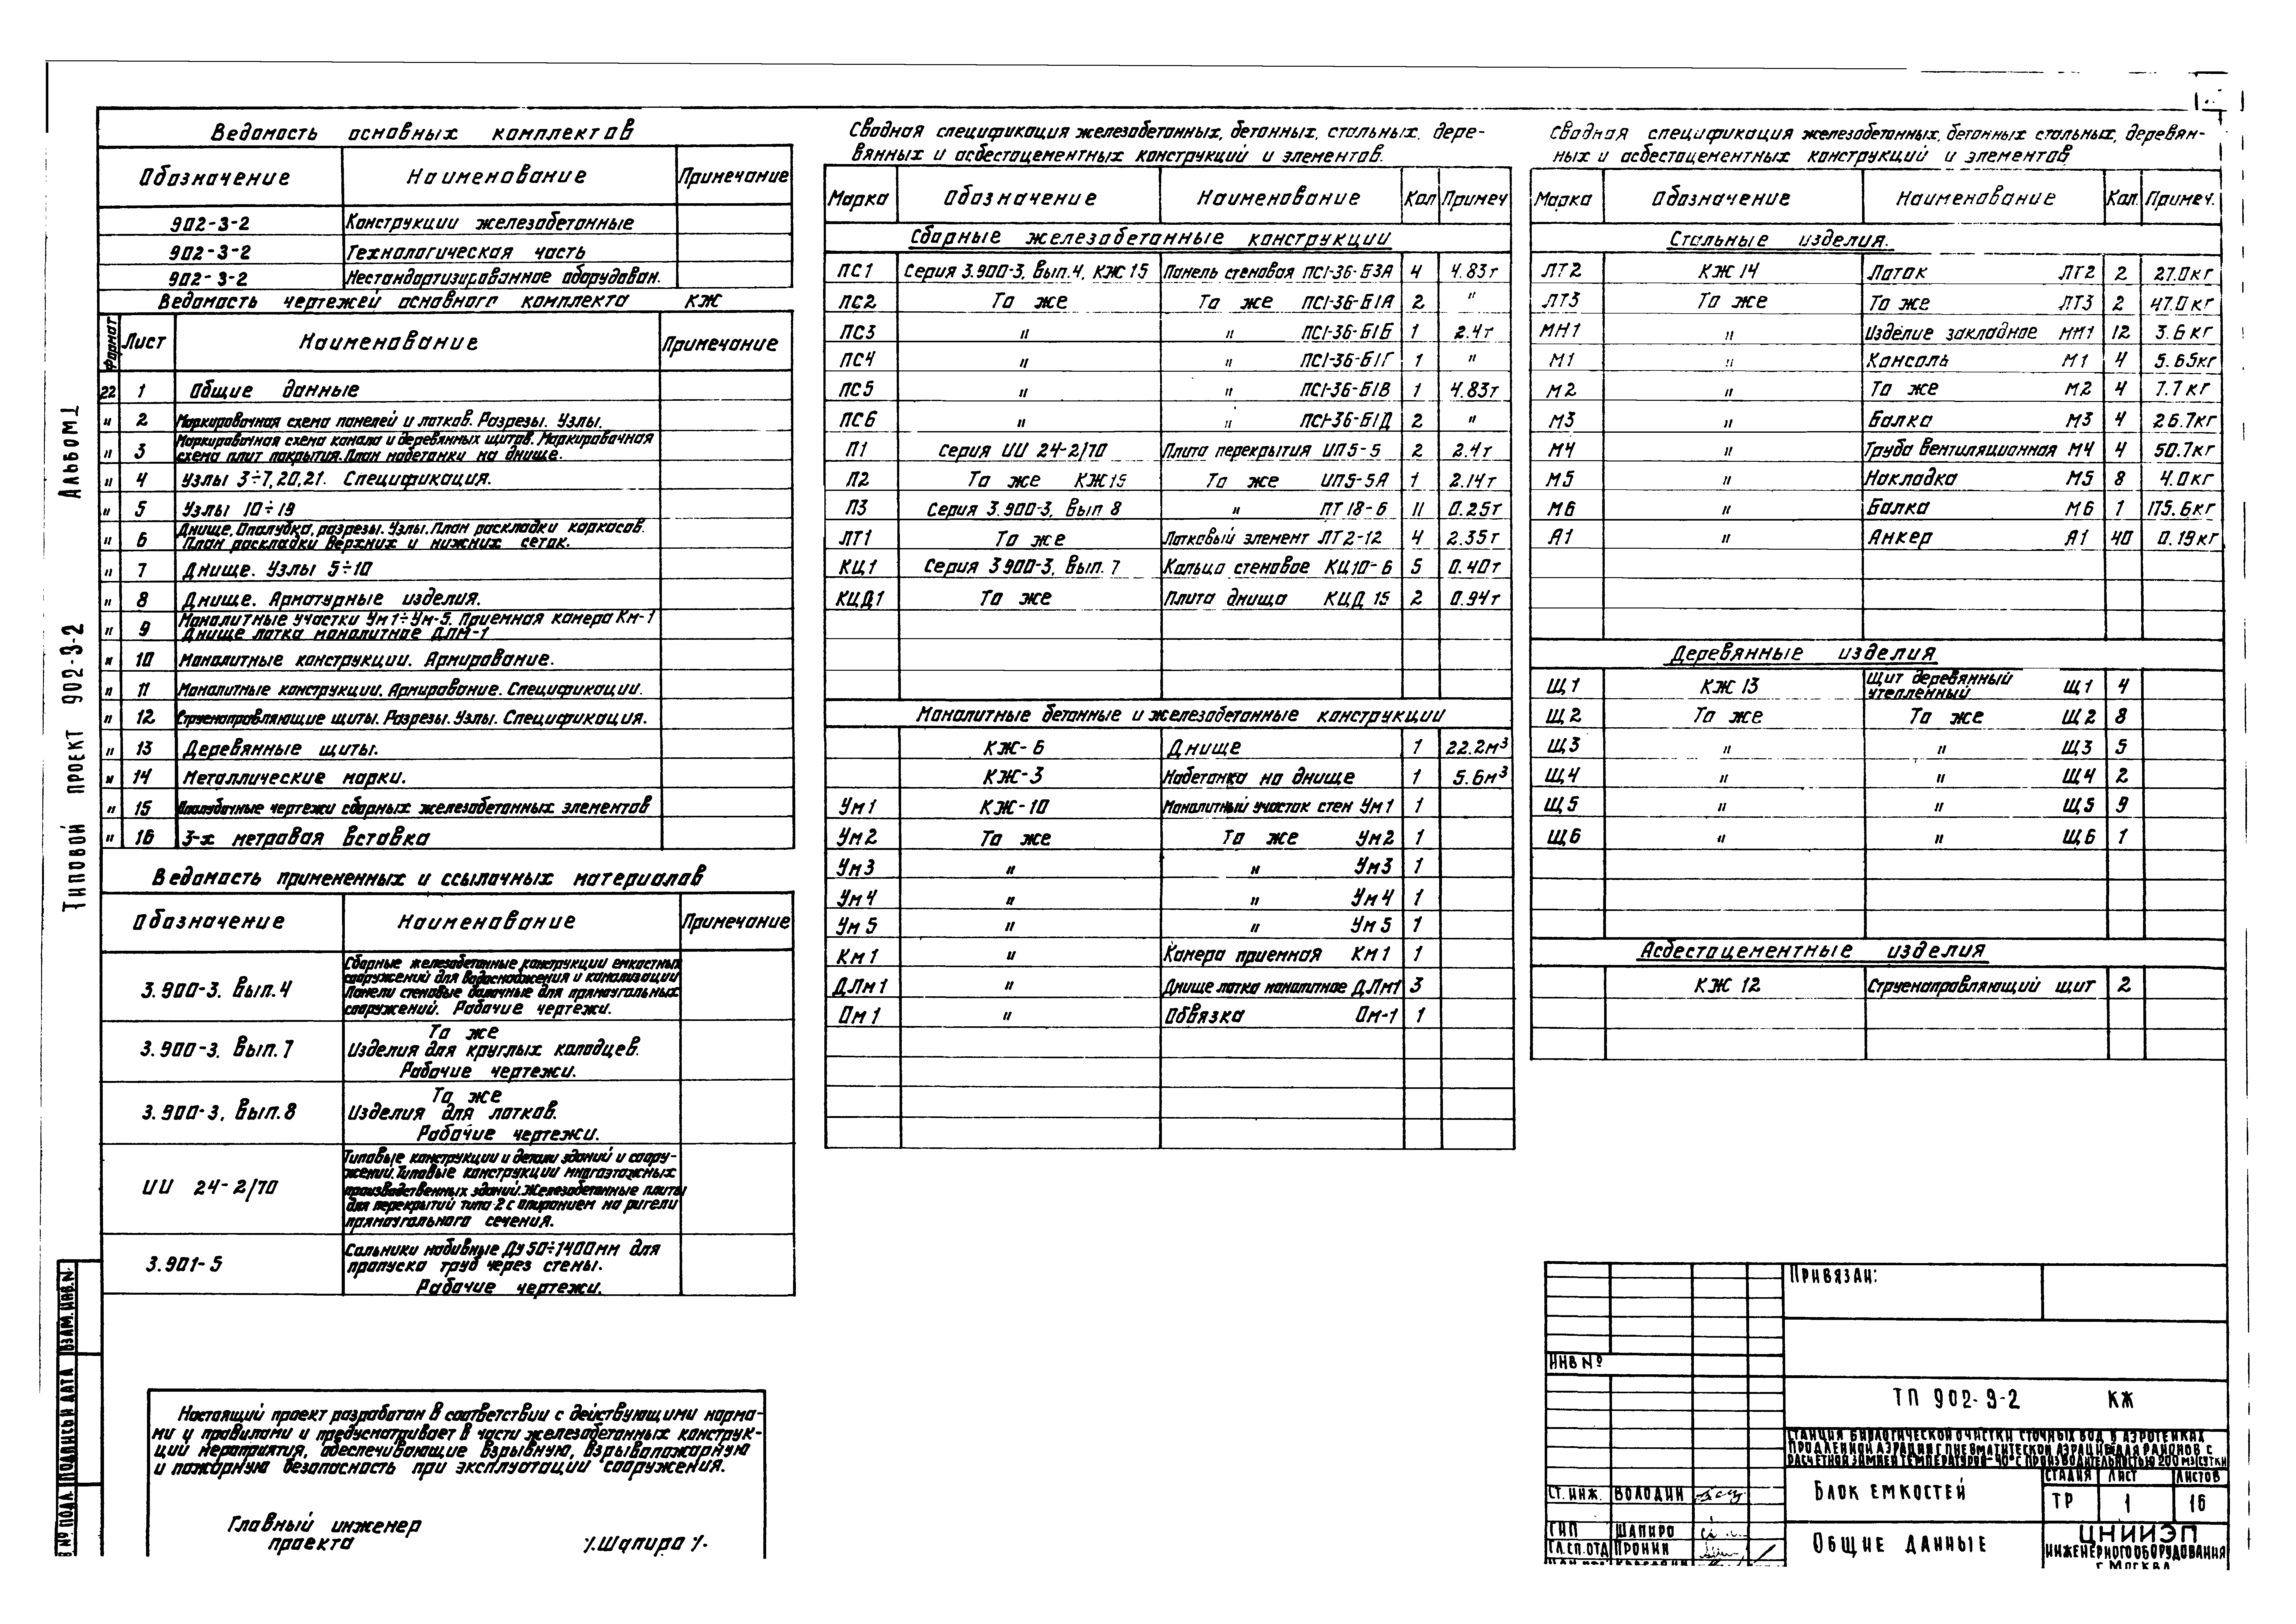 Альбом I
Типовой проект 902-3-2
Ведомость основных комплектов
Обозначение Наименование Примечание
902-3-2 Конструкции железобетонные
902-3-2 Технологическая часть
902-3-2 Нестандартизированное оборудован.
Ведомость чертежей основного комплекта КЖ
Формат Лист Наименование Примечание
22 1 Общие данные
" 2 Маркировочная схема панелей и лотков. Разрезы. Узлы.
" 3 Маркировочная схема канала и деревянных щитов. Маркировочная
схема плит покрытия. План набетонки на днище.
" 4 Узлы 3÷7, 20, 21. Спецификация.
" 5 Узлы 10÷19
" 6 Днище. Опалубка, разрезы. Узлы. План раскладки каркасов.
План раскладки верхних и нижних сеток.
" 7 Днище. Узлы 5÷10
" 8 Днище. Арматурные изделия.
" 9 Монолитные участки Ум1÷Ум-5. Приемная камера Км-1
Днище лотка монолитное ДЛм-1
" 10 Монолитные конструкции. Армирование.
" 11 Монолитные конструкции. Армирование. Спецификации.
" 12 Струенаправляющие щиты. Разрезы. Узлы. Спецификация.
" 13 Деревянные щиты.
" 14 Металлические марки.
" 15 Опалубочные чертежи сборных железобетонных элементов
" 16 3-х метровая вставка
Ведомость примененных и ссылочных материалов
Обозначение Наименование Примечание
3.900-3. Вып. 4 Сборные железобетонные конструкции емкостных
сооружений для водоснабжения и канализации
Панели стеновые балочные для прямоугольных
сооружений. Рабочие чертежи.
3.900-3. Вып. 7 То же
Изделия для круглых колодцев.
Рабочие чертежи.
3.900-3. Вып. 8 То же
Изделия для лотков.
Рабочие чертежи.
ИИ 24-2/70 Типовые конструкции и детали зданий и соору-
жений. Типовые конструкции многоэтажных
производственных зданий. Железобетонные плиты
для перекрытий типа 2 с опиранием на ригели
прямоугольного сечения.
3.901-5 Сальники набивные Ду 50÷1400мм для
пропуска труб через стены.
Рабочие чертежи.
Настоящий проект разработан в соответствии с действующими норма-
ми и правилами и предусматривает в части железобетонных конструк-
ций мероприятия, обеспечивающие взрывную, взрывопожарную
и пожарную безопасность при эксплуатации сооружения.
Главный инженер
проекта /Шапиро/
Сводная спецификация железобетонных, бетонных, стальных, дере-
вянных и асбестоцементных конструкций и элементов.
Марка Обозначение Наименование Кол Примеч
Сборные железобетонные конструкции
ПС1 Серия 3.900-3, Вып. 4, КЖ 15 Панель стеновая ПС1-36-Б3А 4 4.83т
ПС2 То же То же ПС1-36-Б1А 2 "
ПС3 " " ПС1-36-Б1Б 1 2.4т
ПС4 " " ПС1-36-Б1Г 1 "
ПС5 " " ПС1-36-Б1В 1 4.83т
ПС6 " " ПС1-36-Б1Д 2 "
П1 Серия ИИ 24-2/70 Плита перекрытия ИП5-5 2 2.4т
П2 То же КЖ15 То же ИП5-5А 1 2.14т
П3 Серия 3.900-3, Вып 8 " ПТ 18-6 11 0.25т
ЛТ1 То же Лотковый элемент ЛТ2-12 4 2.35т
КЦ1 Серия 3.900-3, Вып. 7 Кольцо стеновое КЦ10-6 5 0.40т
КЦД1 То же Плита днища КЦД 15 2 0.94т
Монолитные бетонные и железобетонные конструкции
КЖ-6 Днище 1 22.2м³
КЖ-3 Набетонка на днище 1 5.6м³
Ум1 КЖ-10 Монолитный участок стен Ум1 1
Ум2 То же То же Ум2 1
Ум3 " " Ум3 1
Ум4 " " Ум4 1
Ум5 " " Ум5 1
Км1 " Камера приемная Км1 1
ДЛм1 " Днище лотка монолитное ДЛм1 3
Ом1 " Обвязка Ом-1 1
Сводная спецификация железобетонных, бетонных стальных, деревян-
ных и асбестоцементных конструкций и элементов
Марка Обозначение Наименование Кол. Примеч.
Стальные изделия.
ЛТ2 КЖ 14 Лоток ЛТ2 2 27.0кг
ЛТ3 То же То же ЛТ3 2 47.0кг
МН1 " Изделие закладное МН1 12 3.6кг
М1 " Консоль М1 4 5.65кг
М2 " То же М2 4 7.7кг
М3 " Балка М3 4 26.7кг
М4 " Труба вентиляционная М4 4 50.7кг
М5 " Накладка М5 8 4.0кг
М6 " Балка М6 1 175.6кг
А1 " Анкер А1 40 0.19кг
Деревянные изделия
Щ1 КЖ 13 Щит деревянный
утепленный Щ1 4
Щ2 То же То же Щ2 8
Щ3 " " Щ3 5
Щ4 " " Щ4 2
Щ5 " " Щ5 9
Щ6 " " Щ6 1
Асбестоцементные изделия
КЖ 12 Струенаправляющий щит 2
Привязан:
ИНВ №
ТП 902-3-2 КЖ
Станция биологической очистки сточных вод в аэротенках
продленной аэрации с пневматической аэрацией для районов с
расчетной зимней температурой -40°С производительностью 200 м3/сутки
Блок емкостей
Стадия Лист Листов
ТР 1 16
Общие данные
ЦНИИЭП
инженерного оборудования
г. Москва
Ст. инж. Володин
ГИП Шапиро
Гл.сп.отд Пронин
Взам. инв. №
Подпись и дата
№ подл.